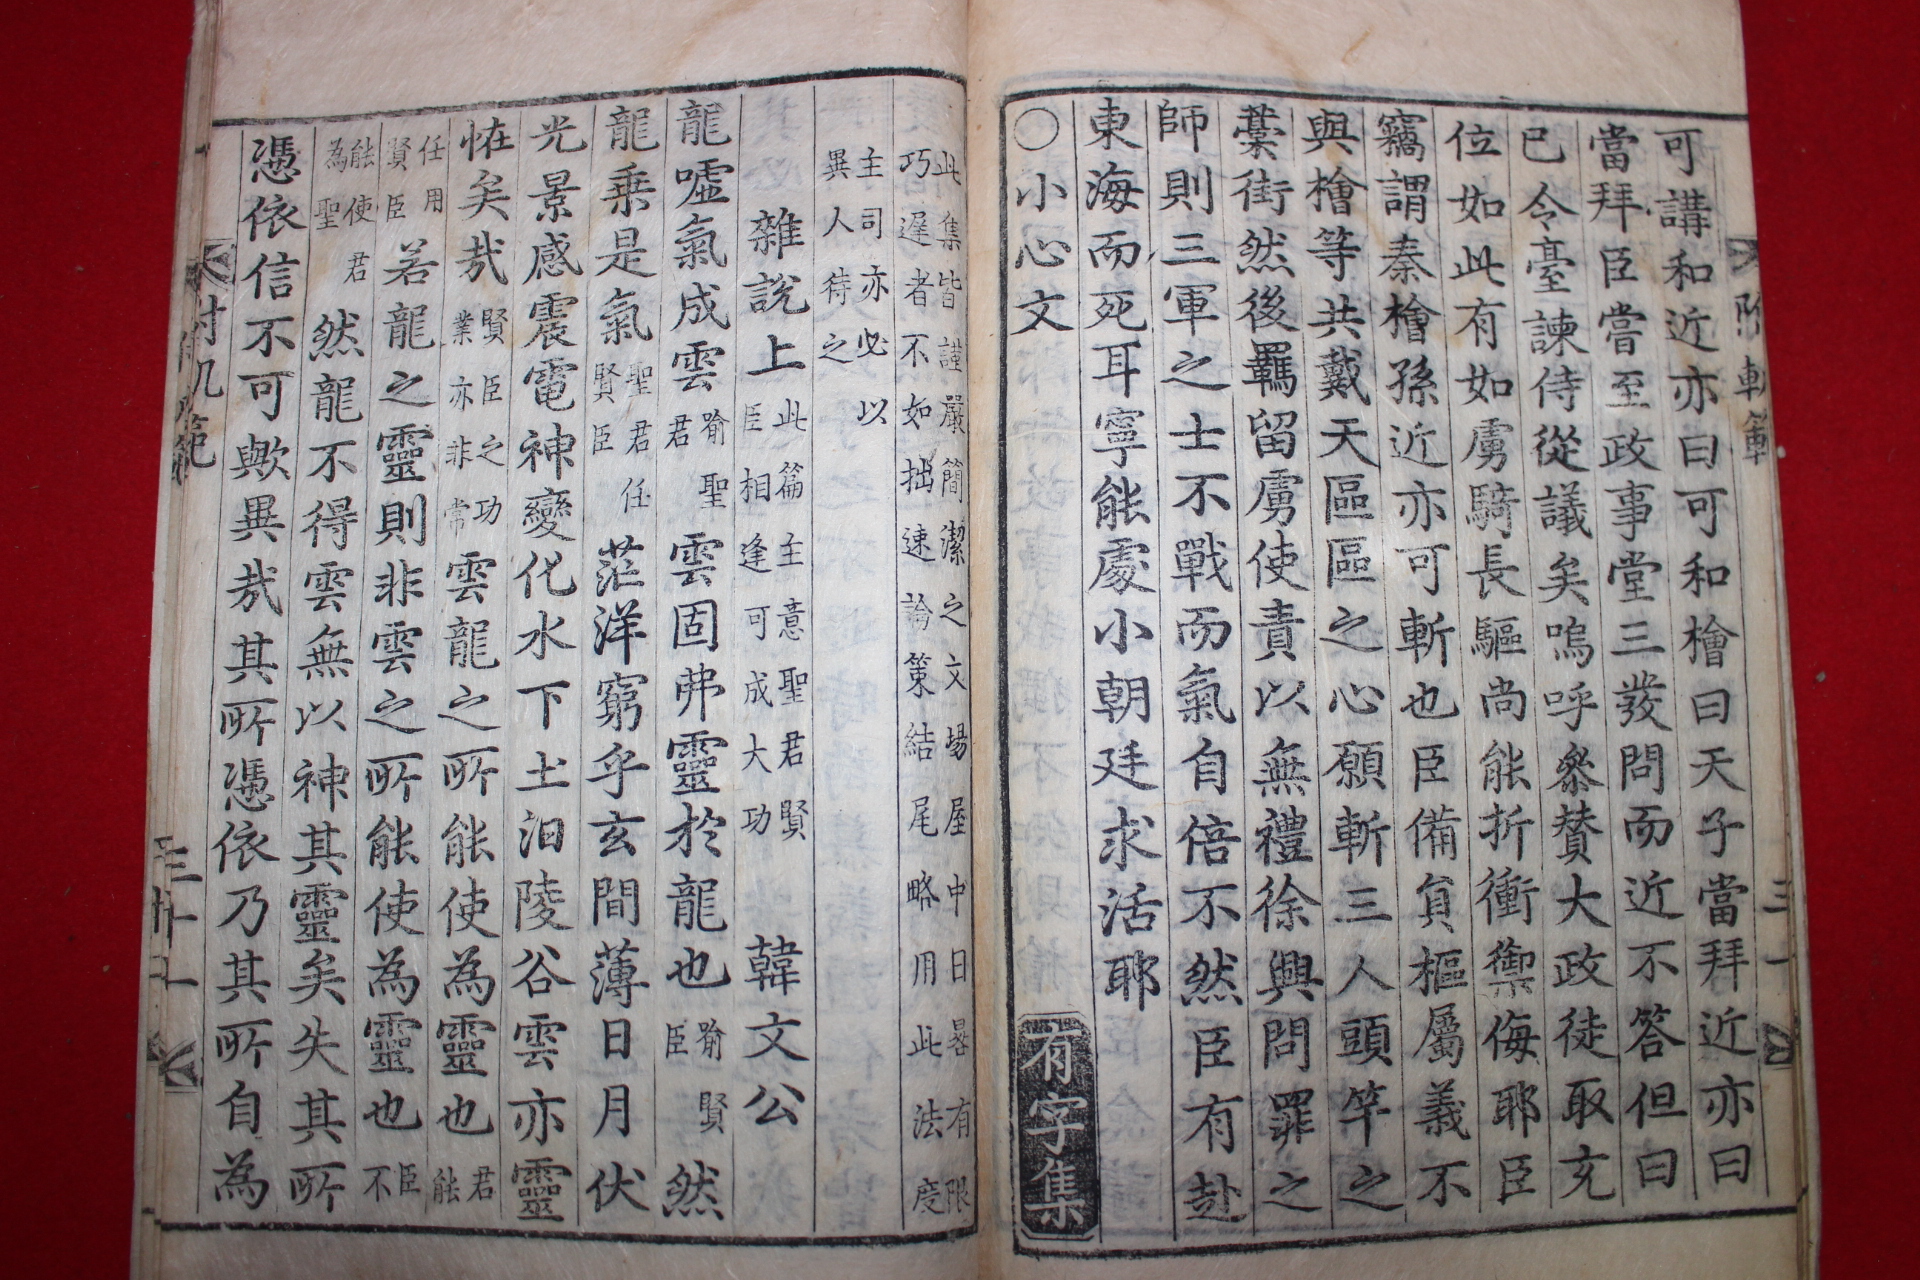 可講和近亦曰可和檜曰天子當拜近亦曰
當拜臣嘗至政事堂三發問而近不答但曰
已令臺諫侍從議矣嗚呼參賛大政徒取充
位如此有如虜騎長驅尚能折衝禦侮耶臣
竊謂秦檜孫近亦可斬也臣備員樞屬義不
與檜等共戴天區區之心願斬三人頭竿之
藁街然後羈留虜使責以無禮徐興問罪之
師則三軍之士不戰而氣自倍不然臣有赴
東海而死耳寧能處小朝廷求活耶
○小心文 有字集
此集皆謹嚴簡潔之文場屋中日晷有限
巧遲者不如拙速論策結尾略用此法度
主司亦必以
異人待之
雜說上 此篇主意聖君賢
臣相逢可成大功 韓文公
龍噓氣成雲 喻聖
君 雲固弗靈於龍也 喻賢
臣 然
龍乗是氣 聖君任
賢臣 茫洋窮乎玄間薄日月伏
光景感震電神變化水下土汩陵谷雲亦靈
恠矣㢤 賢臣之功
業亦非常 雲龍之所能使為靈也 君能
任用
賢臣 若龍之靈則非雲之所能使為靈也 臣不
能使君
為聖 然龍不得雲無以神其靈矣失其所
憑依信不可歟異㢤其所憑依乃其所自為
三十一